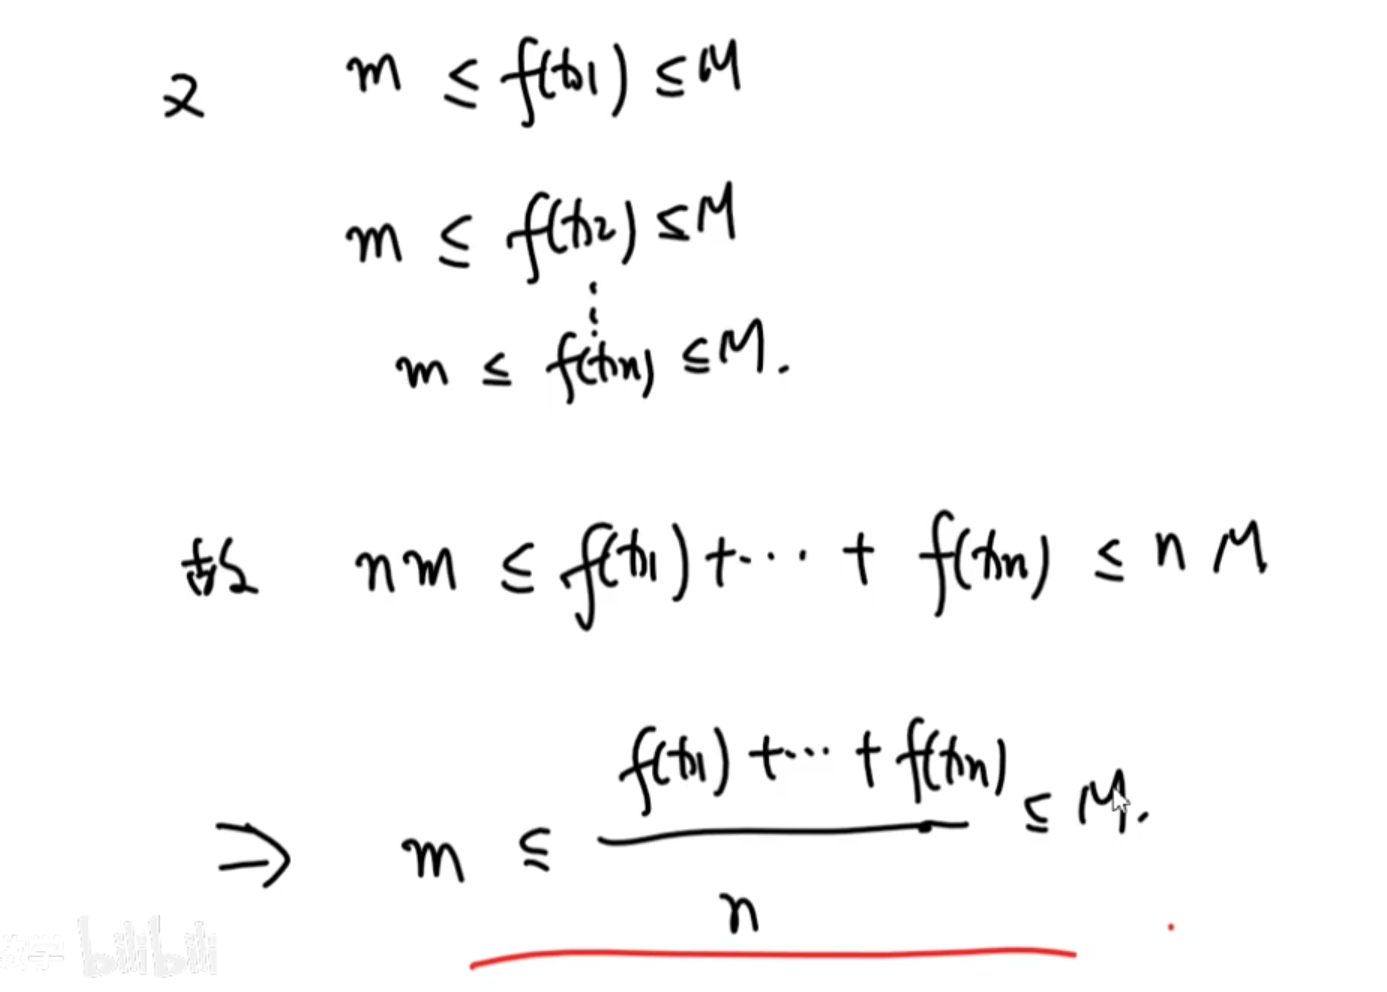 又 m ≤ f(x1) ≤ M
m ≤ f(x2) ≤ M
⋮
m ≤ f(xn) ≤ M.
故 nm ≤ f(x1) + ··· + f(xn) ≤ n M
⇒ m ≤ \frac{f(x1) + ··· + f(xn)}{n} ≤ M.
bilibili